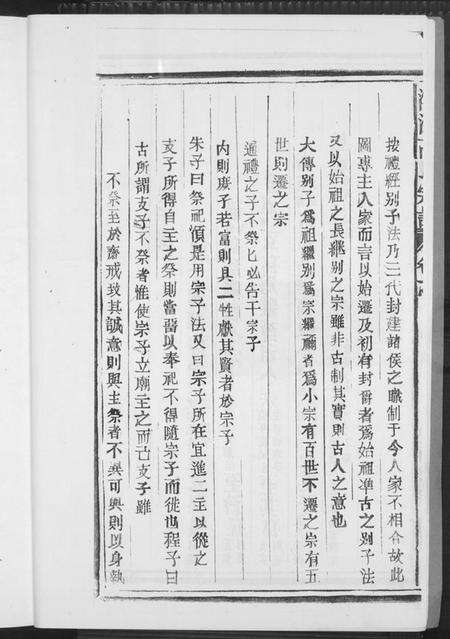 按禮經别子法乃三代封建諸侯之職制于今人家不相合故此
圖專主人家而言以始遷及初有封爵者爲始祖凖古之别子法
又以始祖之長繼别之宗雖非古制其實則古人之意也
大傳别子爲祖繼别爲宗繼禰者爲小宗有百世不遷之宗有五
世則遷之宗
通禮之子不祭匕必告于宗子
内則庶子若富則具二牲獻其賢者於宗子
朱子曰祭祀須是用宗子法又曰宗子所在宜進二主以從之
支子所得自主之祭則當留以奉祀不得隨宗子而徙也程子曰
古所謂支子不祭者惟使宗子立廟主之而已支子雖
不祭至於齋戒致其誠意則與主祭者不異可與則以身執